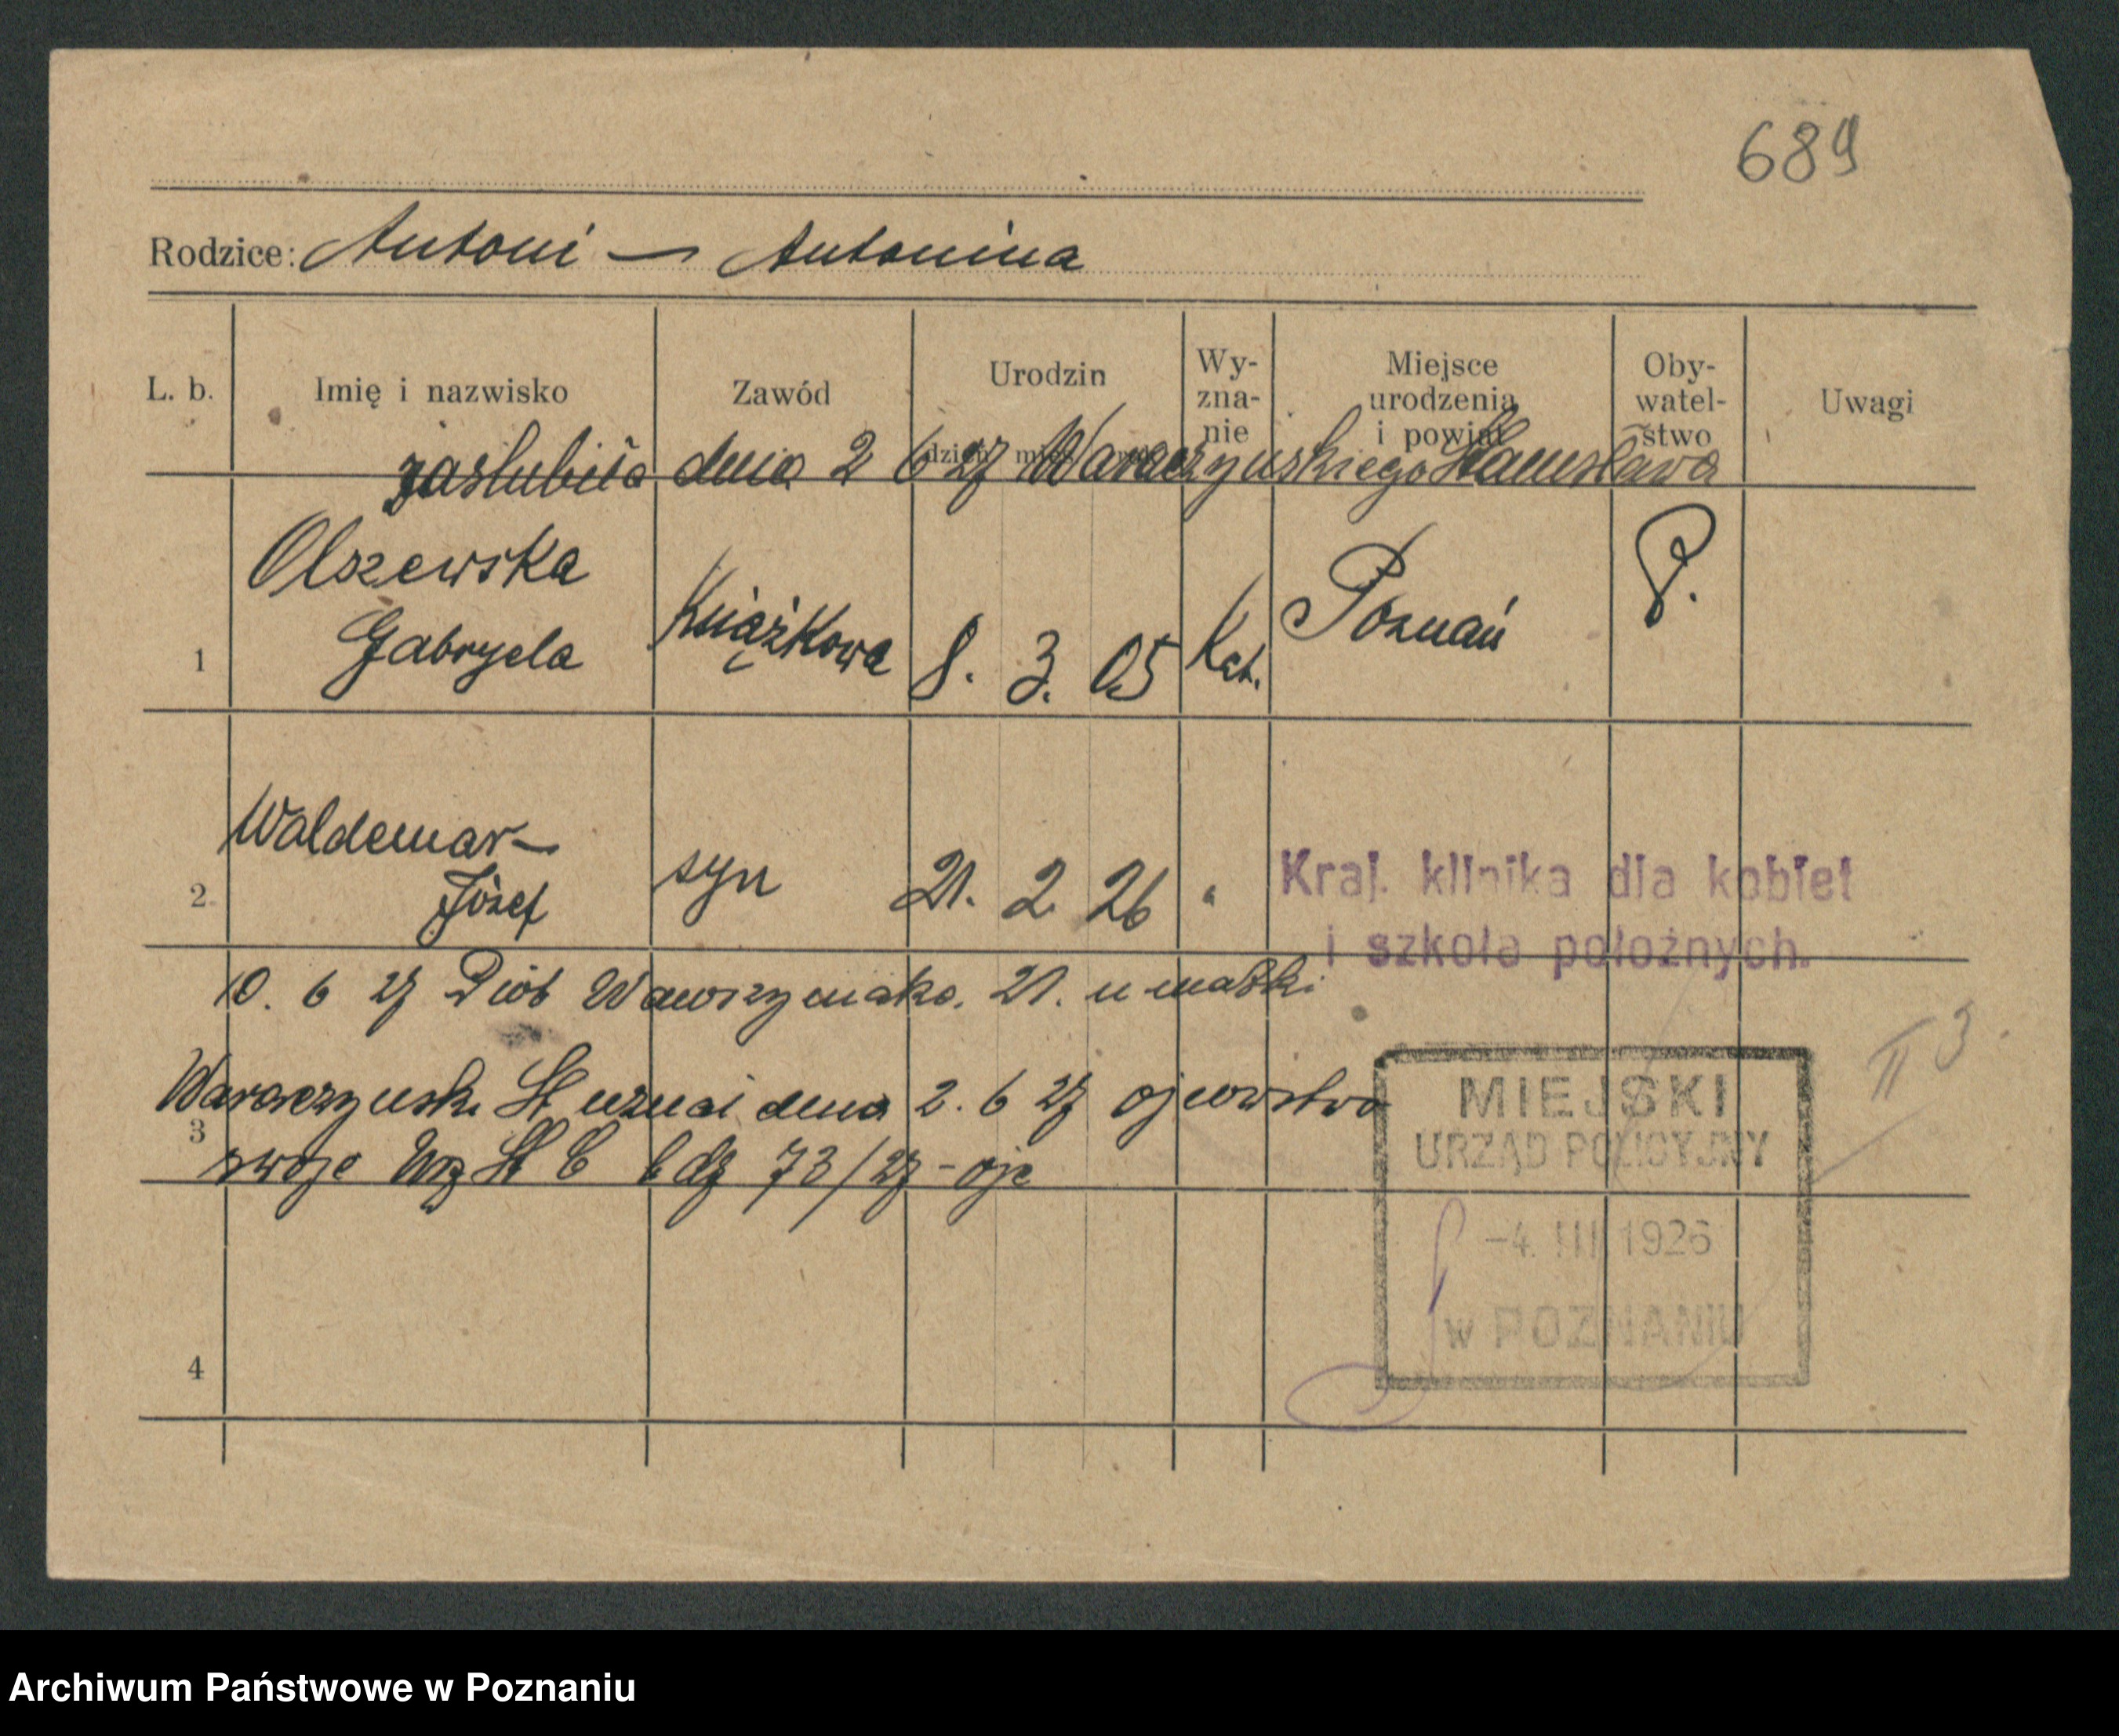 689
Rodzice: Antoni — Antonina
L. b. Imię i nazwisko Zawód Urodzin dzień Wy-zna-nie Miejsce urodzenia i powiat Oby-watel-stwo Uwagi
zaslubiła dnia 2 6 27 Waraczynskiego Stanisława
1 Olszewska Gabryela Książkowa 8. 3. 05 Kat. Poznań P.
2 Waldemar- Józef syn 21. 2 26 "
Kraj. klinika dla kobiet
i szkoła położnych.
10. 6 27 Piotr Wawrzyniaka. 21. u matki
Waraczynski St uznał dnia 2. 6 27 ojcowstwo
3
swoje Urz St C 73/27 - ojc
II 3
MIEJSKI
URZĄD POLICYJNY
-4. III 1926
w POZNANIU
4
Archiwum Państwowe w Poznaniu